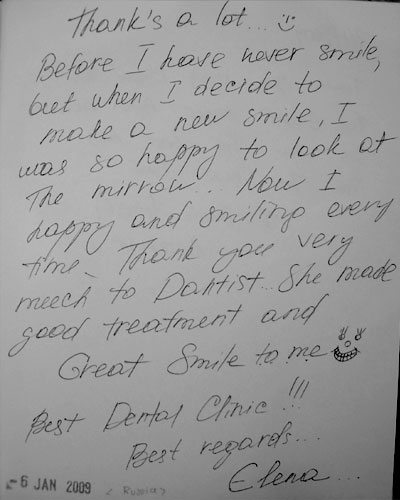 Thank's a lot...
Before I have never smile,
but when I decide to
make a new smile, I
was so happy to look at
The mirrow... Now I
happy and smiling every
time. Thank you very
meech to Dantist... She made
good treatment and
Great Smile to me
Best Dental Clinic !!!
Best regards...
Elena...
-6 JAN 2009 (Russia)